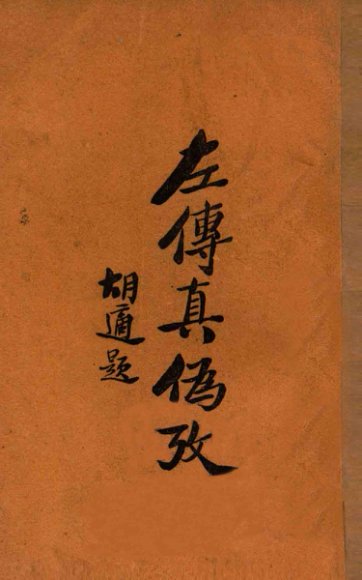 左傳真偽攷
胡適題